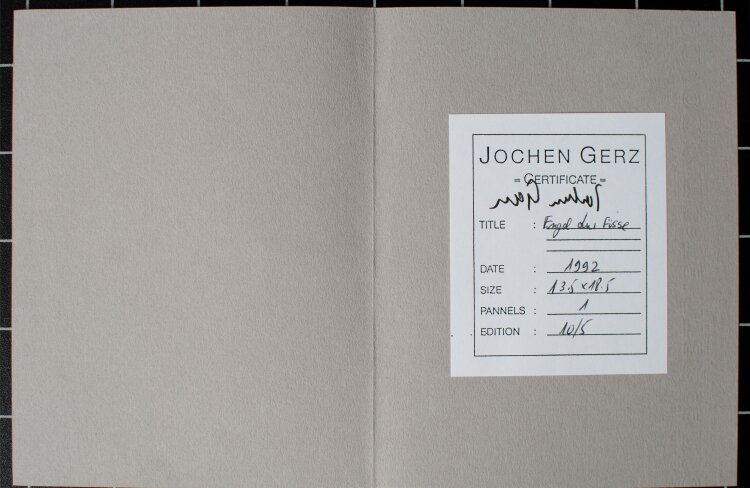 JOCHEN GERZ
= CERTIFICATE =
TITLE : Engel der Füsse
DATE : 1992
SIZE : 13.5 x 18.5
PANNELS : 1
EDITION : 10/5